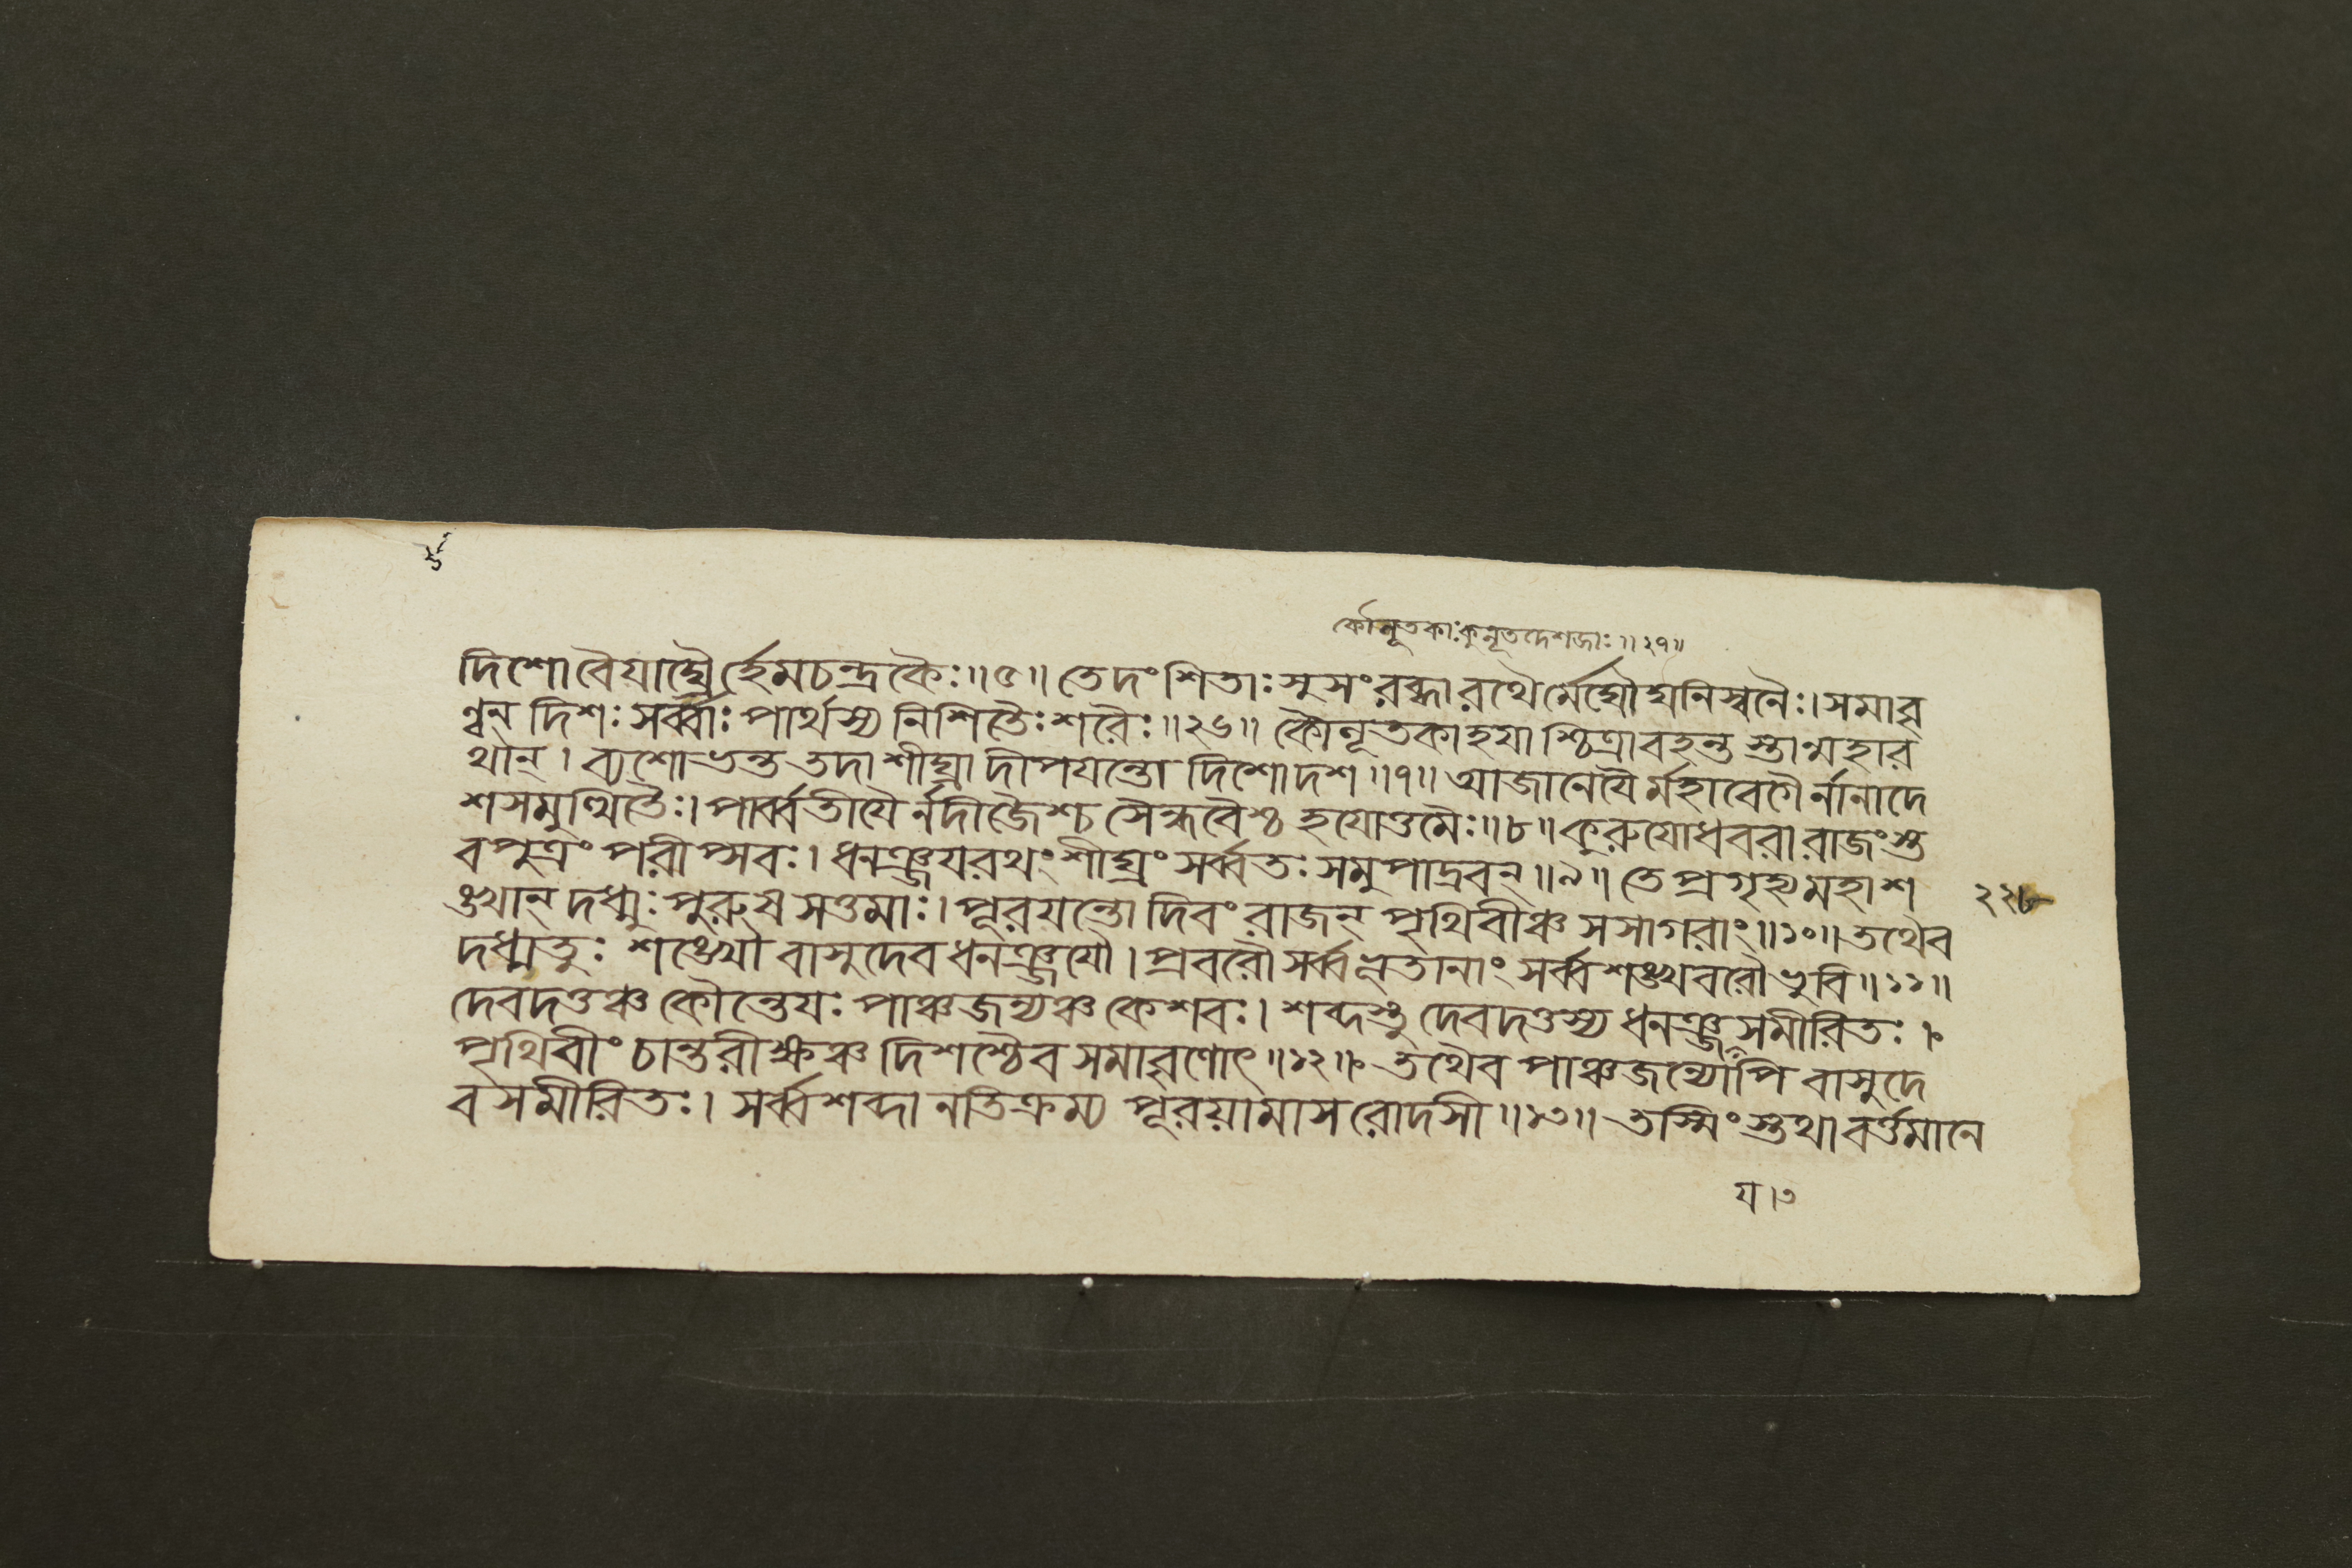 কৌনূতকাঃ কুনূতদেশজাঃ ॥ ২৭॥
দিশো বৈয়াঘ্রৈর্হেমচন্দ্রকৈঃ ॥ ৫॥ তে দংশিতাঃ সুসংরব্ধা রথৈর্মেঘৌঘনিস্বনৈঃ। সমাবৃ
ণ্বন্ দিশঃ সর্ব্বাঃ পার্থস্য নিশিতৈঃ শরৈঃ ॥ ২৬॥ কৌনূতকা হয়াশ্চিত্রা বহন্তস্তান্মহার
থান্। ব্যশোভন্ত তদা শীঘ্রা দীপয়ন্তো দিশো দশ ॥ ৭॥ আজানেয়ৈর্মহাবেগৈর্নানাদে
শসমুত্থিতৈঃ। পার্ব্বতীয়ৈর্নদীজৈশ্চ সৈন্ধবৈশ্চ হয়োত্তমৈঃ ॥ ৮॥ কুরুযোধবরা রাজংস্ত
ব পুত্রং পরীপ্সবঃ। ধনঞ্জয়রথং শীঘ্রং সর্ব্বতঃ সমুপাদ্রবন্ ॥ ৯॥ তে প্রগৃহ্য মহাশ
ঙ্খান্ দধ্মুঃ পুরুষসত্তমাঃ। পূরয়ন্তো দিবং রাজন্ পৃথিবীঞ্চ সসাগরাং ॥ ১০॥ তথৈব
২২৮
দধ্মতুঃ শঙ্খৌ বাসুদেবধনঞ্জয়ৌ। প্রবরৌ সর্ব্বভূতানাং সর্ব্বশঙ্খবরৌ ভুবি ॥ ১১॥
দেবদত্তঞ্চ কৌন্তেয়ঃ পাঞ্চজন্যঞ্চ কেশবঃ। শব্দস্তু দেবদত্তস্য ধনঞ্জসমীরিতঃ।
পৃথিবীং চান্তরীক্ষঞ্চ দিশশ্চৈব সমাবৃণোৎ ॥ ১২॥ তথৈব পাঞ্চজন্যোঽপি বাসুদে
বসমীরিতঃ। সর্ব্বশব্দানতিক্রম্য পূরয়ামাস রোদসী ॥ ১৩॥ তস্মিংস্তথা বর্ত্তমানে
য। ৩